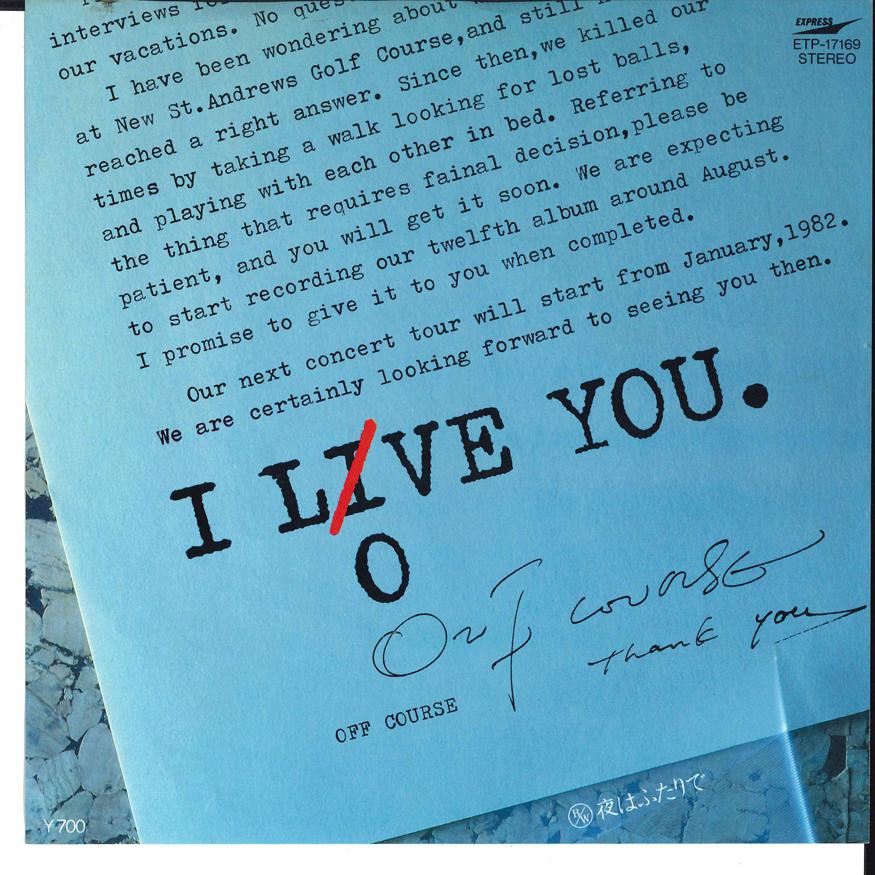 interviews
our vacations. No
I have been wondering about
at New St.Andrews Golf Course,and still
reached a right answer. Since then,we killed our
times by taking a walk looking for lost balls,
and playing with each other in bed. Referring to
the thing that requires fainal decision,please be
patient, and you will get it soon. We are expecting
to start recording our twelfth album around August.
I promise to give it to you when completed.
Our next concert tour will start from January,1982.
We are certainly looking forward to seeing you then.
I LIVE YOU.
O
OFF COURSE
thank you
OFF COURSE
EXPRESS
ETP-17169
STEREO
B/W 夜はふたりで
Y700